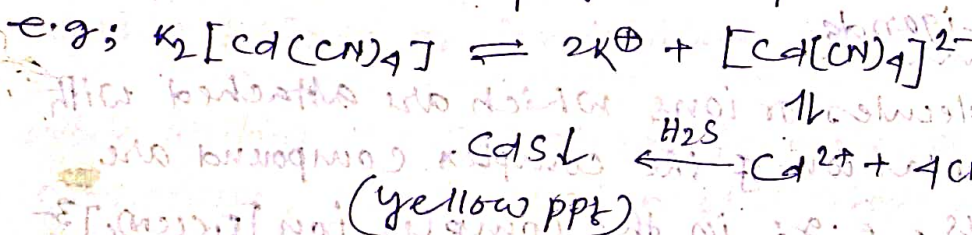 e.g; K₂[Cd(CN)₄] ⇌ 2K⊕ + [Cd(CN)₄]²⁻
⇅
CdS↓ ←H₂S— Cd²⁺ + 4C
(yellow ppt)